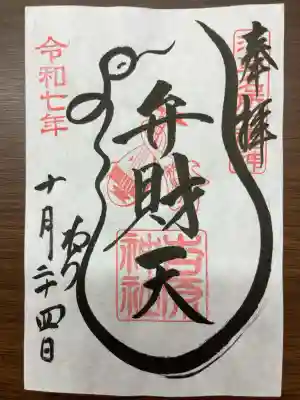 奉拝
弁財天
吉原
神社
令和七年
十月二十四日